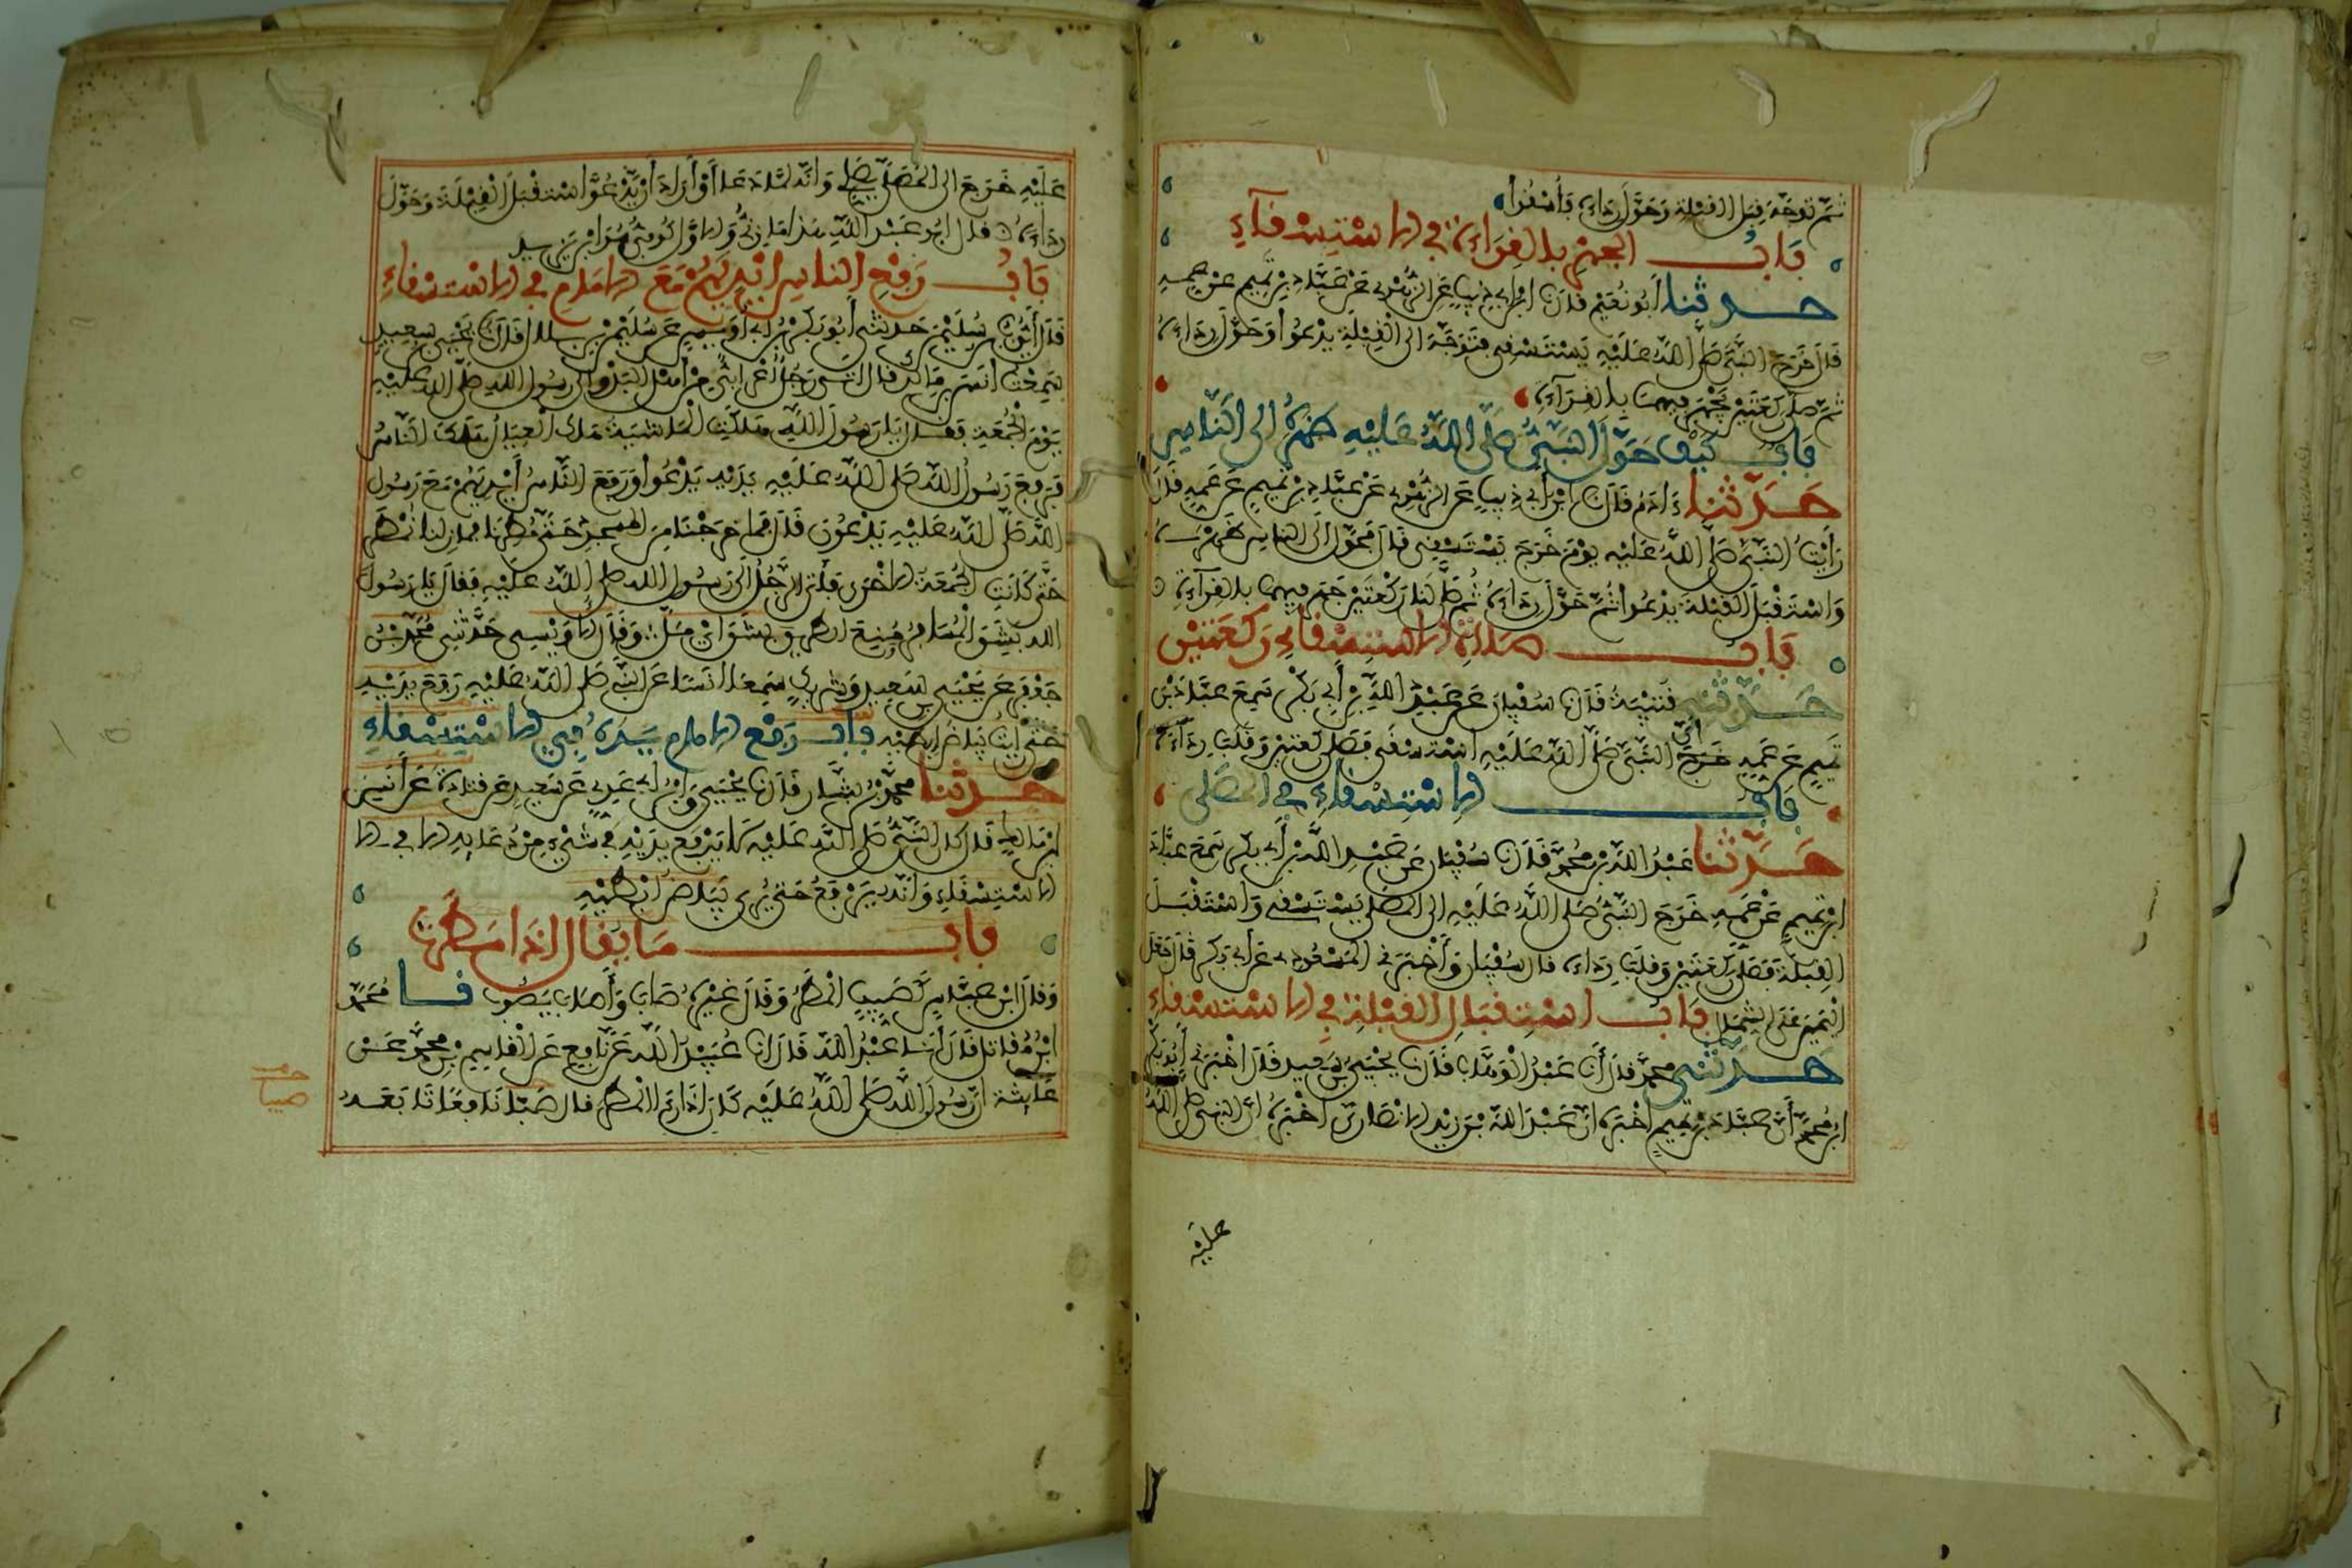 ثم توجه قبل القبلة وحول رداءه فأسقوا
باب الجهر بالقراءة في الاستسقاء
حدثنا أبو نعيم قال نا ابن أبي ذيب عن الزهري عن عباد بن تميم عن عمه
قال خرج النبي صلى الله عليه يستسقي فتوجه الى القبلة يدعوا وحول رداءه
ثم صلى ركعتين يجهر فيهما بالقراءة
باب كيف حول النبي صلى الله عليه ظهره الى الناس
حدثنا ءادم قال نا ابن أبي ذيب عن الزهري عن عباد بن تميم عن عمه قال
رأيت النبي صلى الله عليه يوم خرج يستسقي قال فحول الى الناس ظهره
واستقبل القبلة يدعوا ثم حول رداءه ثم صلى لنا ركعتين جهر فيهما بالقراءة
باب صلاة الاستسقاء ركعتين
حدثني قتيبة قال نا سفيان عن عبد الله بن أبي بكر سمع عباد بن
تميم عن عمه أن النبي صلى الله عليه استسقى فصلى ركعتين وقلب رداءه
باب الاستسقاء في المصلى
حدثنا عبد الله بن محمد قال نا سفيان عن عبد الله بن أبي بكر سمع عباد
ابن تميم عن عمه خرج النبي صلى الله عليه الى المصلى يستسقي واستقبل
القبلة فصلى ركعتين وقلب رداءه قال سفيان وأخبرني المسعودي عن أبي بكر قال جعل
اليمين على الشمال باب استقبال القبلة في الاستسقاء
حدثني محمد قال أنا عبد الوهاب قال نا يحيى بن سعيد قال اخبرني أبو بكر
ابن محمد أن عباد بن تميم اخبره ان عبد الله بن زيد الانصاري اخبره ان النبي صلى الله
عليه
عليه خرج الى المصلى يصلي وانه لما دعا أو أراد أن يدعو استقبل القبلة وحول
رداءه قال ابو عبد الله هذا مازني والاول كوفي هو ابن يزيد
باب رفع الناس ايديهم مع الامام في الاستسقاء
قال أيوب بن سليمن حدثني أبو بكر بن أبي أويس عن سليمن بن بلال قال نا يحيى بن سعيد
سمعت أنس بن مالك قال اتى رجل أعرابي من أهل البدو الى رسول الله صلى الله عليه
يوم الجمعة فقال يا رسول الله هلكت الماشية هلك العيال هلك الناس
فرفع رسول الله صلى الله عليه يديه يدعوا ورفع الناس أيديهم مع رسول
الله صلى الله عليه يدعون قال فما خرجنا من المسجد حتى مطرنا فما زلنا نمطر
حتى كانت الجمعة الاخرى فأتى الرجل الى رسول الله صلى الله عليه فقال يا رسول
الله بشق المسافر ومنع الطريق بشق اي مل وقال الاويسي حدثني محمد بن
جعفر عن يحيى بن سعيد وشريك سمعا انسا عن النبي صلى الله عليه رفع يديه
حتى رأيت بياض إبطيه باب رفع الامام يده في الاستسقاء
حدثنا محمد بن بشار قال نا يحيى وابن أبي عدي عن سعيد عن قتادة عن أنس
ابن مالك قال كان النبي صلى الله عليه لا يرفع يديه في شيء من دعايه الا في الا
الاستسقاء وانه يرفع حتى يرى بياض ابطيه
باب ما يقال اذا مطرت
وقال ابن عباس كصيب المطر وقال غيره صاب وأصاب يصوب نا محمد
ابن مقاتل قال أنا عبد الله قال انا عبيد الله عن نافع عن القاسم بن محمد عن
عايشة ان رسول الله صلى الله عليه كان اذا رأى المطر قال صيبا نافعا تابعه
صيبا